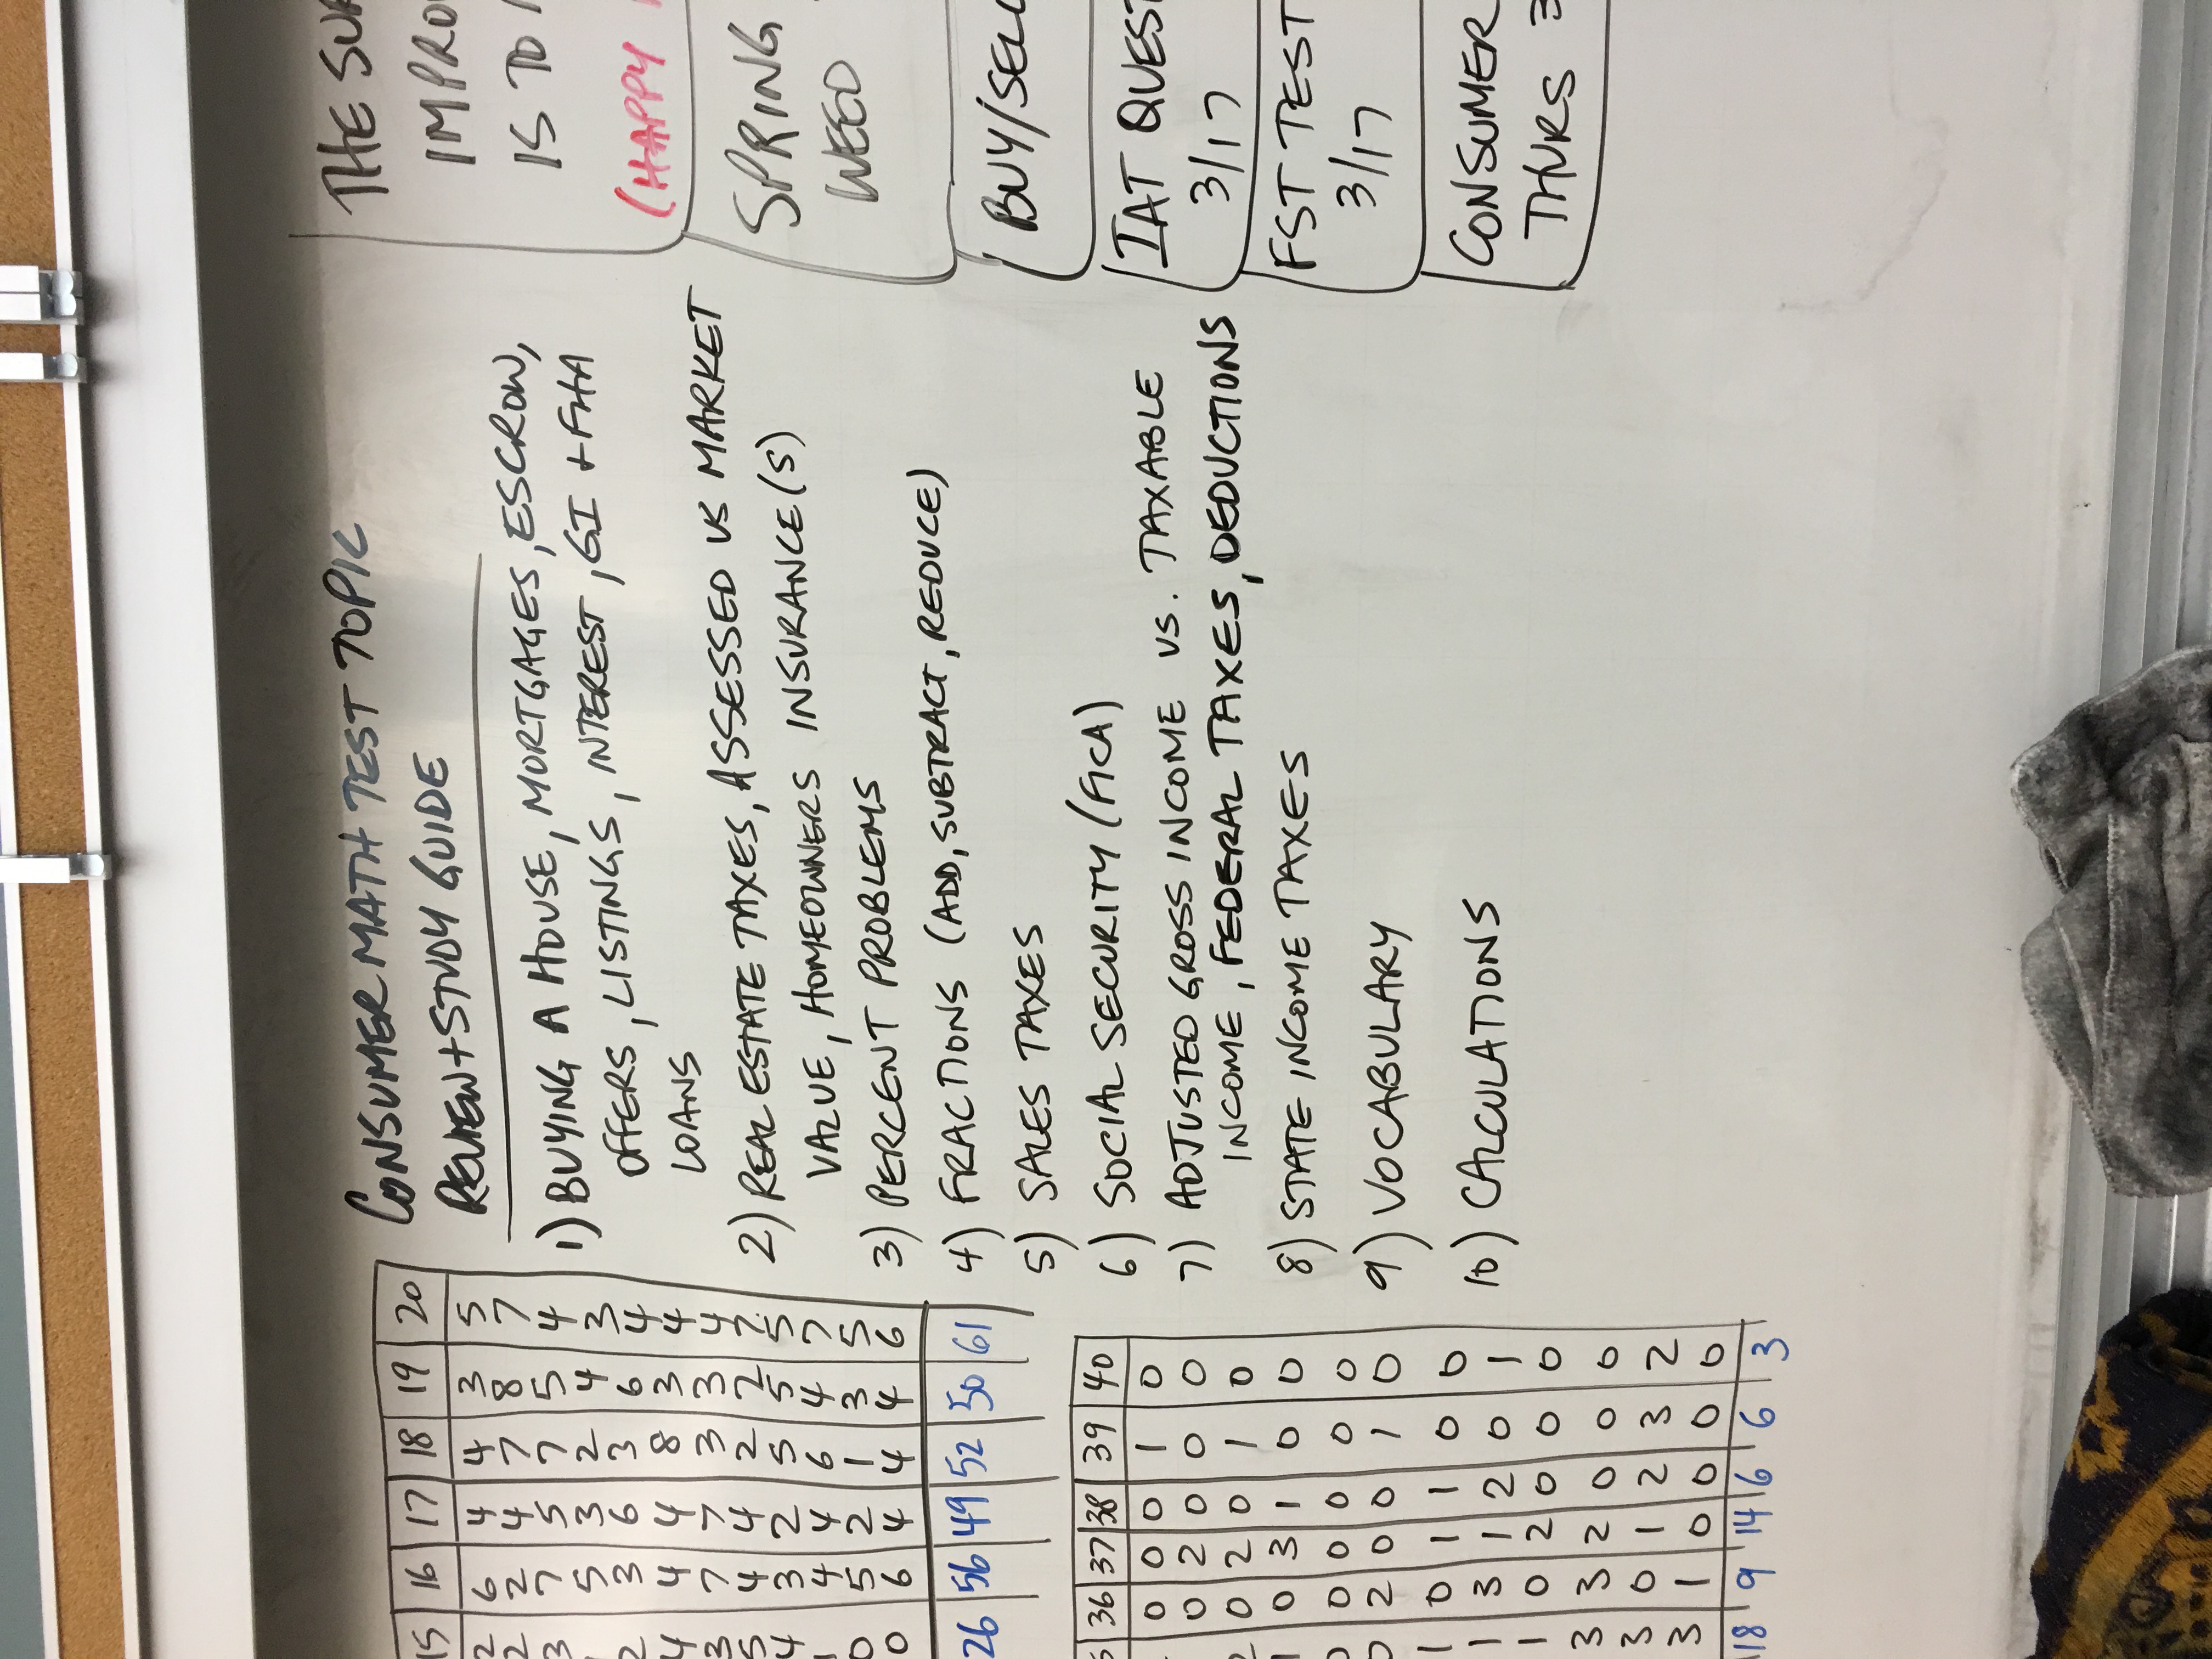 15 16 17 18 19 20
2 6 4 4 3 5
2 2 4 7 8 7
3 7 5 7 5 4
5 3 2 4 3
2 3 6 3 6 4
4 4 4 8 3 4
3 7 7 3 3 4
5 4 4 2 2 7
4 3 2 5 5 5
1 4 4 6 4 7
0 5 2 1 3 5
0 6 4 4 4 6
26 56 49 52 50 61
36 37 38 39 40
0 0 0 1 0
0 2 0 0 0
0 2 0 1 0
0 3 1 0 0
0 0 0 0 0
2 0 0 1 0
1 0 1 1 0 0
1 3 1 2 0 1
1 0 2 0 0 0
3 3 2 0 0 0
3 0 1 2 3 2
3 1 0 0 0 0
18 9 14 6 6 3
CONSUMER MATH TEST TOPIC
REVIEW + STUDY GUIDE
1) BUYING A HOUSE, MORTGAGES, ESCROW,
OFFERS, LISTINGS, INTEREST, GI + FHA
LOANS
2) REAL ESTATE TAXES, ASSESSED VS MARKET
VALUE, HOMEOWNERS INSURANCE(S)
3) PERCENT PROBLEMS
4) FRACTIONS (ADD, SUBTRACT, REDUCE)
5) SALES TAXES
6) SOCIAL SECURITY (FICA)
7) ADJUSTED GROSS INCOME VS. TAXABLE
INCOME, FEDERAL TAXES, DEDUCTIONS
8) STATE INCOME TAXES
9) VOCABULARY
10) CALCULATIONS
THE SUR
IMPRO
IS TO
(HAPPY
SPRING
WEED
BUY/SELL
IAT QUEST
3/17
FST TEST
3/17
CONSUMER
THURS 3